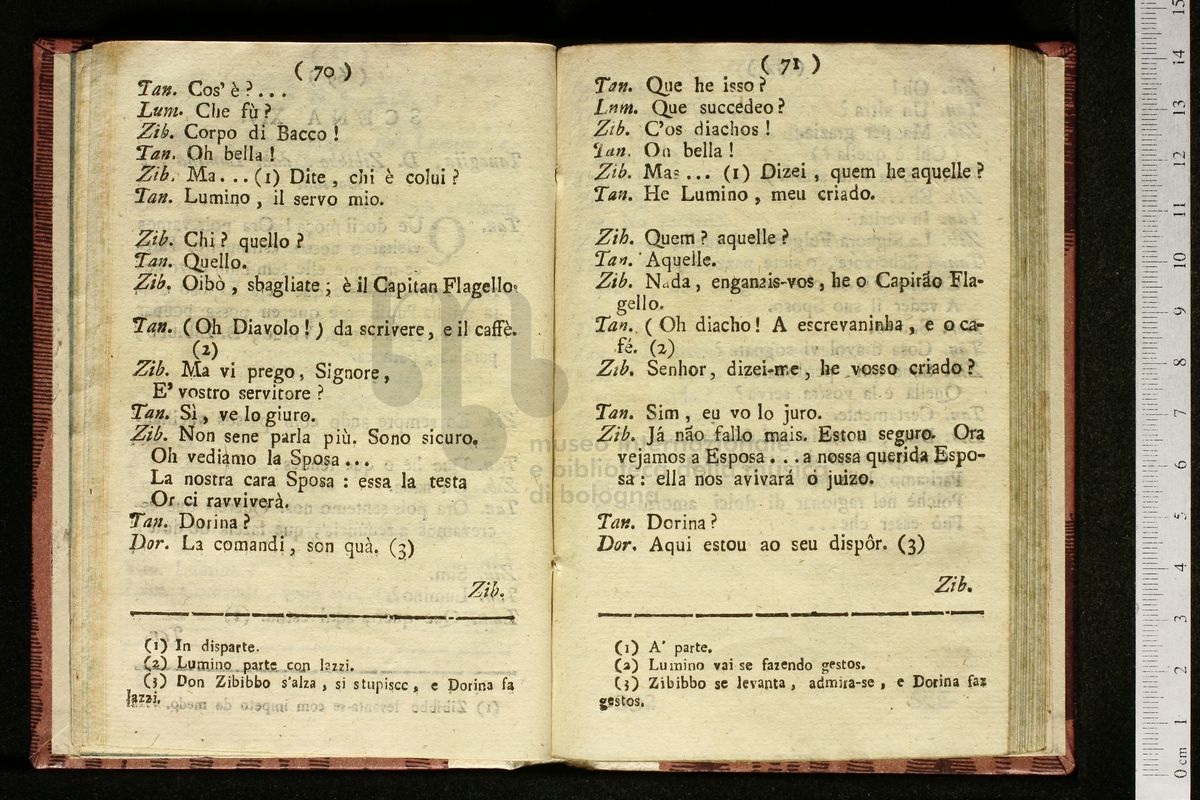 ( 70 )
Tan. Cos' è ? . . .
Lum. Che fù ?
Zib. Corpo di Bacco !
Tan. Oh bella !
Zib. Ma . . . (1) Dite , chi è colui ?
Tan. Lumino , il servo mio.
Zib. Chi ? quello ?
Tan. Quello.
Zib. Oibò , sbagliate ; è il Capitan Flagello.
Tan. ( Oh Diavolo ! ) da scrivere , e il caffè.
(2)
Zib. Ma vi prego , Signore ,
E' vostro servitore ?
Tan. Sì , ve lo giuro.
Zib. Non sene parla più. Sono sicuro.
Oh vediamo la Sposa . . .
La nostra cara Sposa : essa la testa
Or ci ravviverà.
Tan. Dorina ?
Dor. La comandi , son quà. (3)
Zib.
(1) In disparte.
(2) Lumino parte con lazzi.
(3) Don Zibibbo s'alza , si stupisce , e Dorina fa
lazzi.
( 71 )
Tan. Que he isso ?
Lnm. Que succedeo ?
Zib. C'os diachos !
Tan. On bella !
Zib. Mas . . . (1) Dizei , quem he aquelle ?
Tan. He Lumino , meu criado.
Zib. Quem ? aquelle ?
Tan. Aquelle.
Zib. Nada , enganais-vos , he o Capitão Fla-
gello.
Tan. ( Oh diacho ! A escrevaninha , e o ca-
fé. (2)
Zib. Senhor , dizei-me , he vosso criado ?
Tan. Sim , eu vo lo juro.
Zib. Já não fallo mais. Estou seguro. Ora
vejamos a Esposa . . . a nossa querida Espo-
sa : ella nos avivará o juizo.
Tan. Dorina ?
Dor. Aqui estou ao seu dispôr. (3)
Zib.
(1) A' parte.
(2) Lumino vai se fazendo gestos.
(3) Zibibbo se levanta , admira-se , e Dorina faz
gestos.
museo internazionale
e biblioteca della musica
di bologna
0 cm 1 2 3 4 5 6 7 8 9 10 11 12 13 14 15